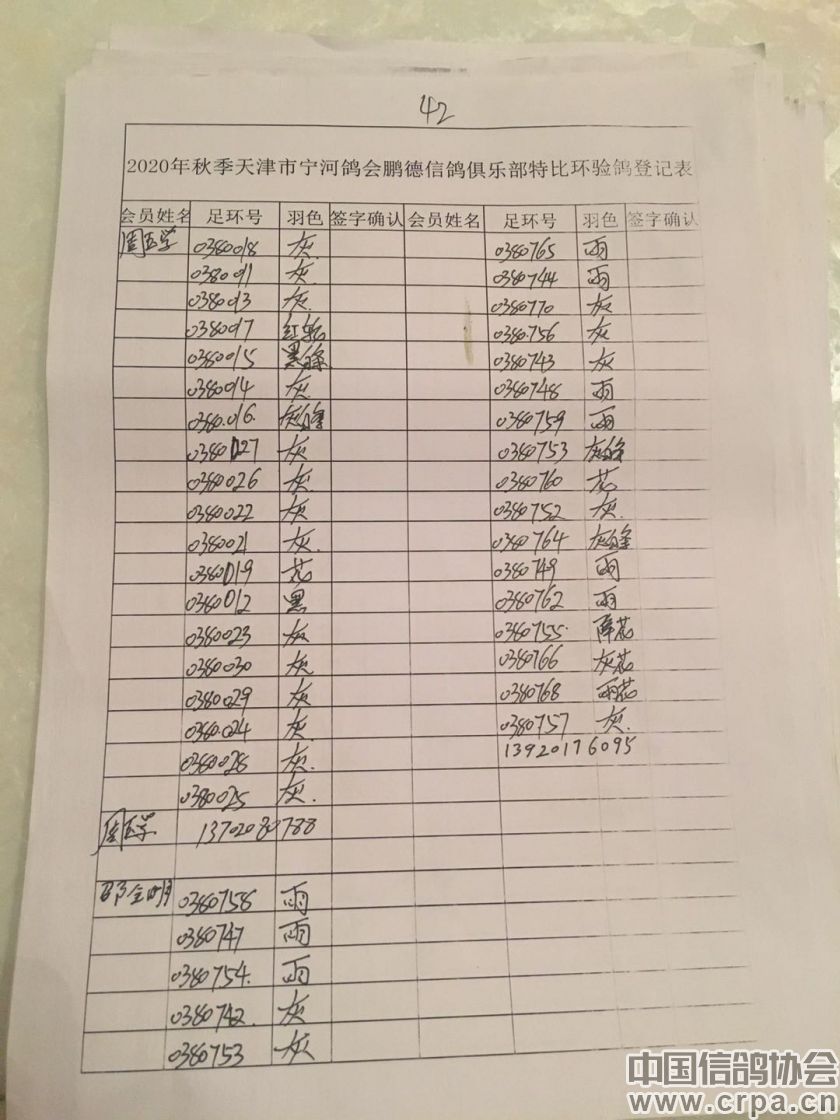 42
2020年秋季天津市宁河鸽会鹏德信鸽俱乐部特比环验鸽登记表
会员姓名 足环号 羽色 签字确认 会员姓名 足环号 羽色 签字确认
周医学 0380018 灰 0380765 雨
0380011 灰 0380744 雨
0380013 灰 0380770 灰
0380017 红轮 0380756 灰
0380015 黑条 0380743 灰
0380014 灰 0380748 雨
0380016 灰白条 0380759 雨
0380027 灰 0380753 灰白条
0380026 灰 0380760 花
0380022 灰 0380752 灰
0380021 灰 0380764 灰白条
0380019 花 0380749 雨
0380012 黑 0380762 雨
0380023 灰 0380755 降花
0380030 灰 0380766 灰花
0380029 灰 0380768 雨花
0380024 灰 0380757 灰
0380028 灰 13920176095
0380025 灰
周医学 13702080788
邵全明 0380758 雨
0380747 雨
0380754 雨
0380742 灰
0380753 灰
中国信鸽协会
www.crpa.cn